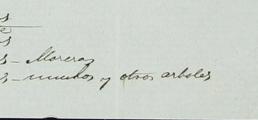 s
e
s
s - Moreras
s - muchos y otros arboles